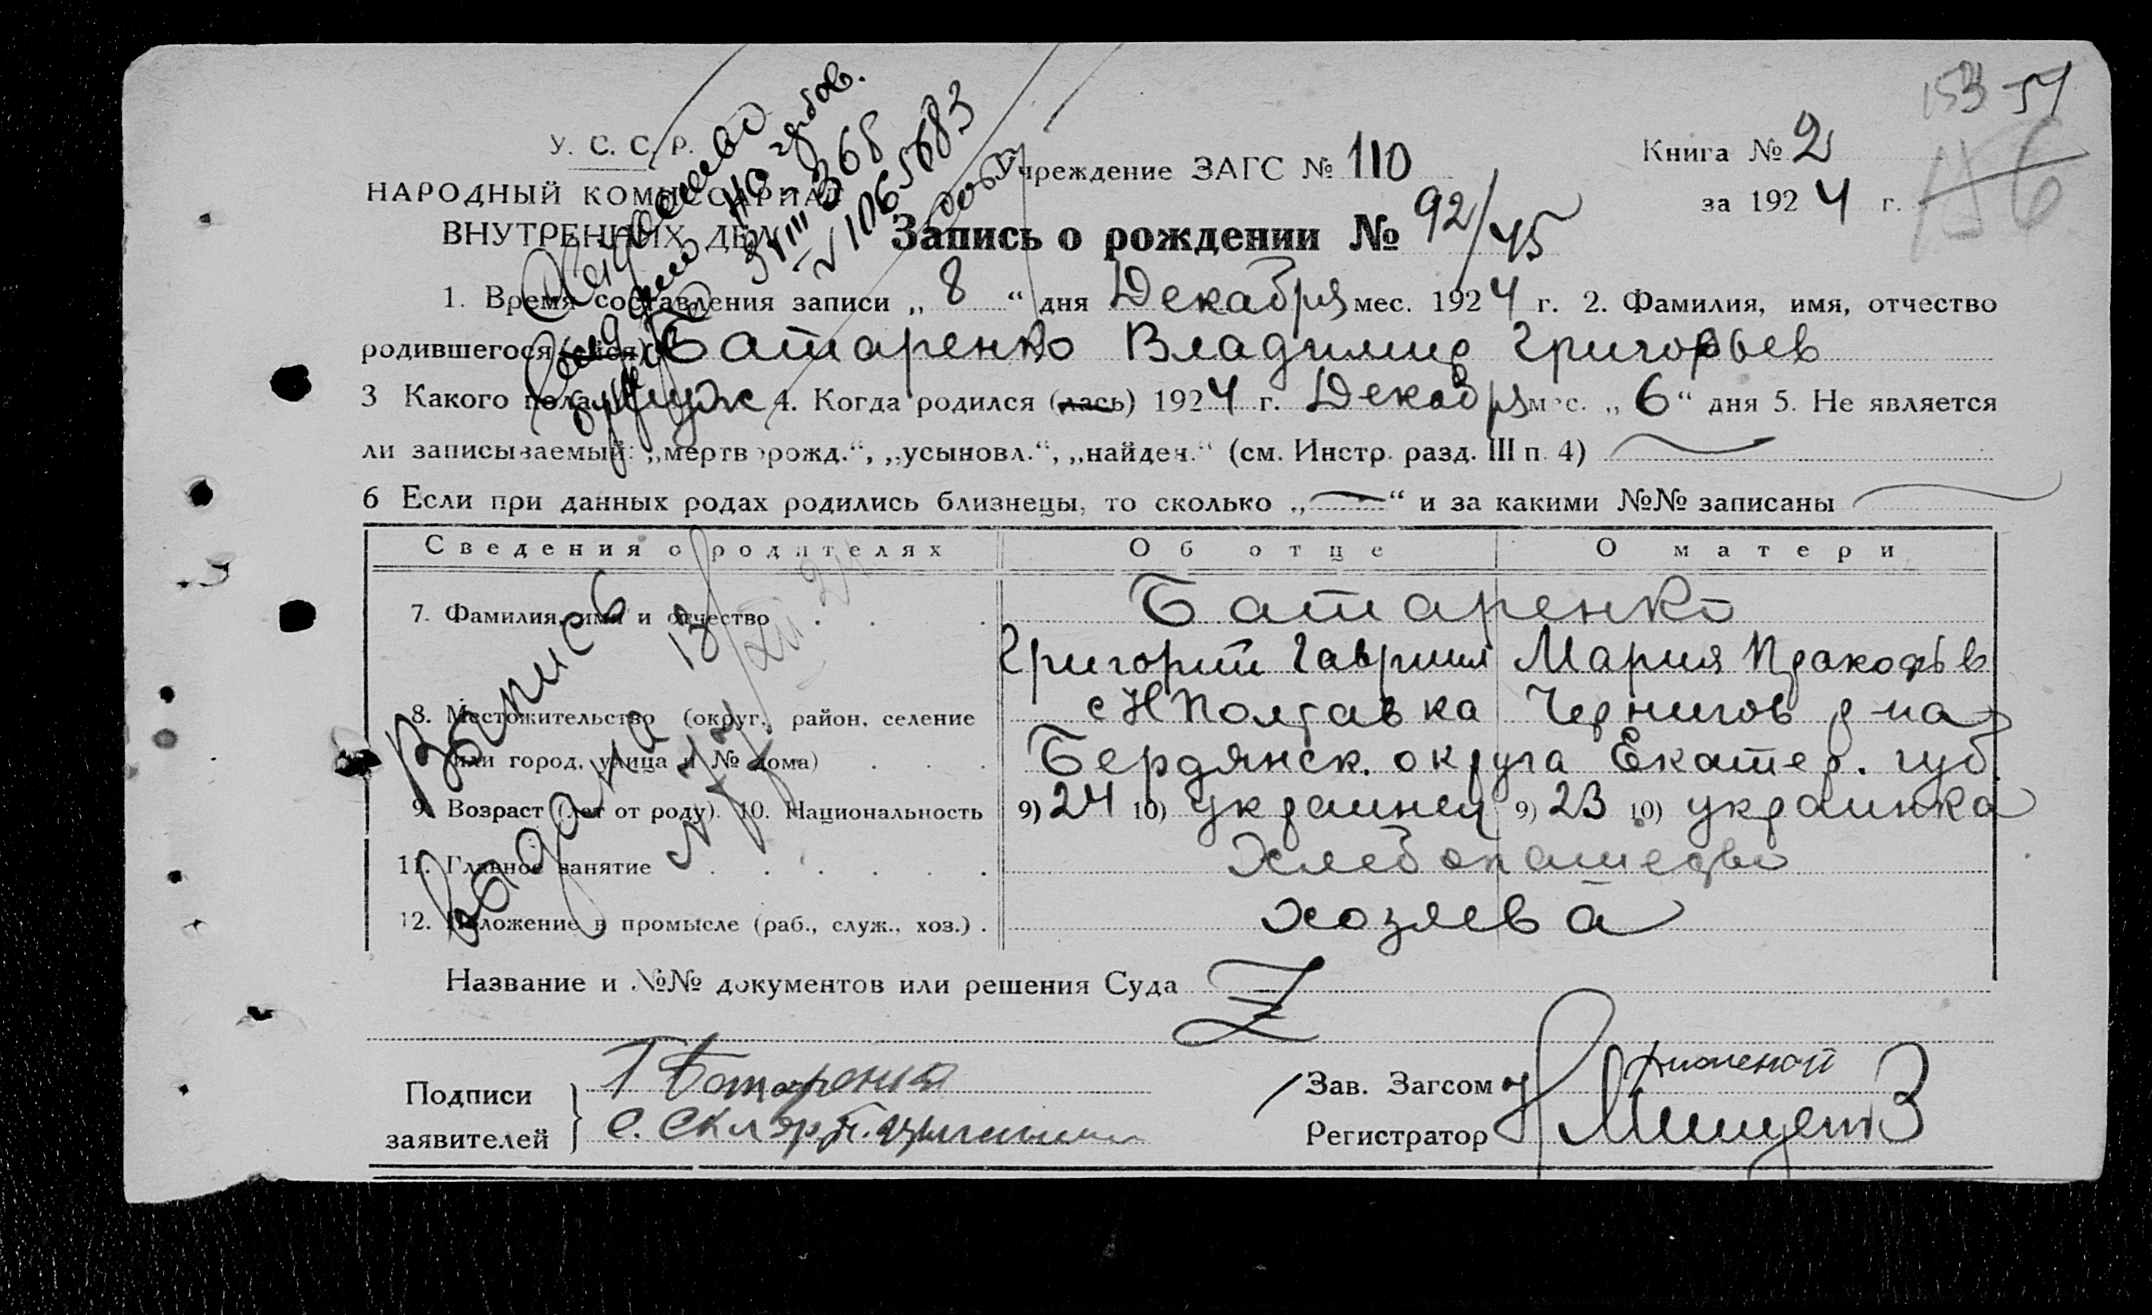 153 54
156
У. С. С. Р.
НАРОДНЫЙ КОМИССАРИАТ
ВНУТРЕННИХ ДЕЛ
Учреждение ЗАГС № 110
Книга № 2
за 1924 г.
Запись о рождении № 92/45
1. Время составления записи „8“ дня Декабря мес. 1924 г. 2. Фамилия, имя, отчество
родившегося (шейся) Батаренко Владимир Григорьев
3 Какого пола муж 4. Когда родился (лась) 1924 г. Декабря мес. „6“ дня 5. Не является
ли записываемый: „мертворожд.“, „усыновл.“, „найден.“ (см. Инстр. разд. III п. 4)
6 Если при данных родах родились близнецы, то сколько „—“ и за какими №№ записаны
Сведения о родителях Об отце О матери
7. Фамилия, имя и отчество Батаренко
Григорий Гаврил Мария Пракофьв
8. Местожительство (округ, район, селение сНПолтавка Чернигов р-на
или город, улица и № дома) Бердянск. округа Екатер. губ.
9. Возраст (лет от роду). 10. Национальность 9) 24 10) украинец 9) 23 10) украинка
11. Главное занятие Хлебопашество
12. Положение в промысле (раб., служ., хоз.) хозяева
Выпись
выдана 18/XII 24
№ 77
Название и №№ документов или решения Суда
Подписи
заявителей
Г Батаренко
Зав. Загсом
Регистратор